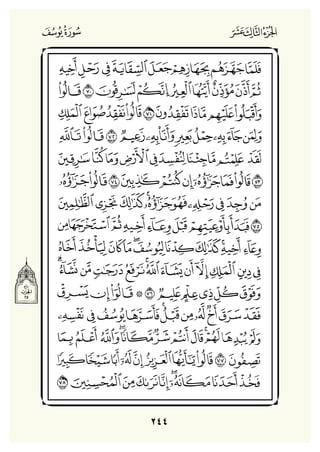 سُورَةُ يُوسُفَ
الجُزْءُ الثَّالِثَ عَشَرَ
فَلَمَّا جَهَّزَهُم بِجَهَازِهِمْ جَعَلَ ٱلسِّقَايَةَ فِى رَحْلِ أَخِيهِ
ثُمَّ أَذَّنَ مُؤَذِّنٌ أَيَّتُهَا ٱلْعِيرُ إِنَّكُمْ لَسَٰرِقُونَ ٧٠ قَالُوا۟
وَأَقْبَلُوا۟ عَلَيْهِم مَّاذَا تَفْقِدُونَ ٧١ قَالُوا۟ نَفْقِدُ صُوَاعَ ٱلْمَلِكِ
وَلِمَن جَآءَ بِهِۦ حِمْلُ بَعِيرٍ وَأَنَا۠ بِهِۦ زَعِيمٌ ٧٢ قَالُوا۟ تَٱللَّهِ
لَقَدْ عَلِمْتُم مَّا جِئْنَا لِنُفْسِدَ فِى ٱلْأَرْضِ وَمَا كُنَّا سَٰرِقِينَ
٧٣ قَالُوا۟ فَمَا جَزَٰٓؤُهُۥٓ إِن كُنتُمْ كَٰذِبِينَ ٧٤ قَالُوا۟ جَزَٰٓؤُهُۥ
مَن وُجِدَ فِى رَحْلِهِۦ فَهُوَ جَزَٰٓؤُهُۥ كَذَٰلِكَ نَجْزِى ٱلظَّٰلِمِينَ
٧٥ فَبَدَأَ بِأَوْعِيَتِهِمْ قَبْلَ وِعَآءِ أَخِيهِ ثُمَّ ٱسْتَخْرَجَهَا مِن
وِعَآءِ أَخِيهِ كَذَٰلِكَ كِدْنَا لِيُوسُفَ مَا كَانَ لِيَأْخُذَ أَخَاهُ
فِى دِينِ ٱلْمَلِكِ إِلَّآ أَن يَشَآءَ ٱللَّهُ نَرْفَعُ دَرَجَٰتٍ مَّن نَّشَآءُ
وَفَوْقَ كُلِّ ذِى عِلْمٍ عَلِيمٌ ٧٦ ۞ قَالُوٓا۟ إِن يَسْرِقْ
فَقَدْ سَرَقَ أَخٌ لَّهُۥ مِن قَبْلُ فَأَسَرَّهَا يُوسُفُ فِى نَفْسِهِۦ
وَلَمْ يُبْدِهَا لَهُمْ قَالَ أَنتُمْ شَرٌّ مَّكَانًا وَٱللَّهُ أَعْلَمُ بِمَا
تَصِفُونَ ٧٧ قَالُوا۟ يَٰٓأَيُّهَا ٱلْعَزِيزُ إِنَّ لَهُۥٓ أَبًا شَيْخًا كَبِيرًا
فَخُذْ أَحَدَنَا مَكَانَهُۥٓ إِنَّا نَرَىٰكَ مِنَ ٱلْمُحْسِنِينَ ٧٨
٢٤٤